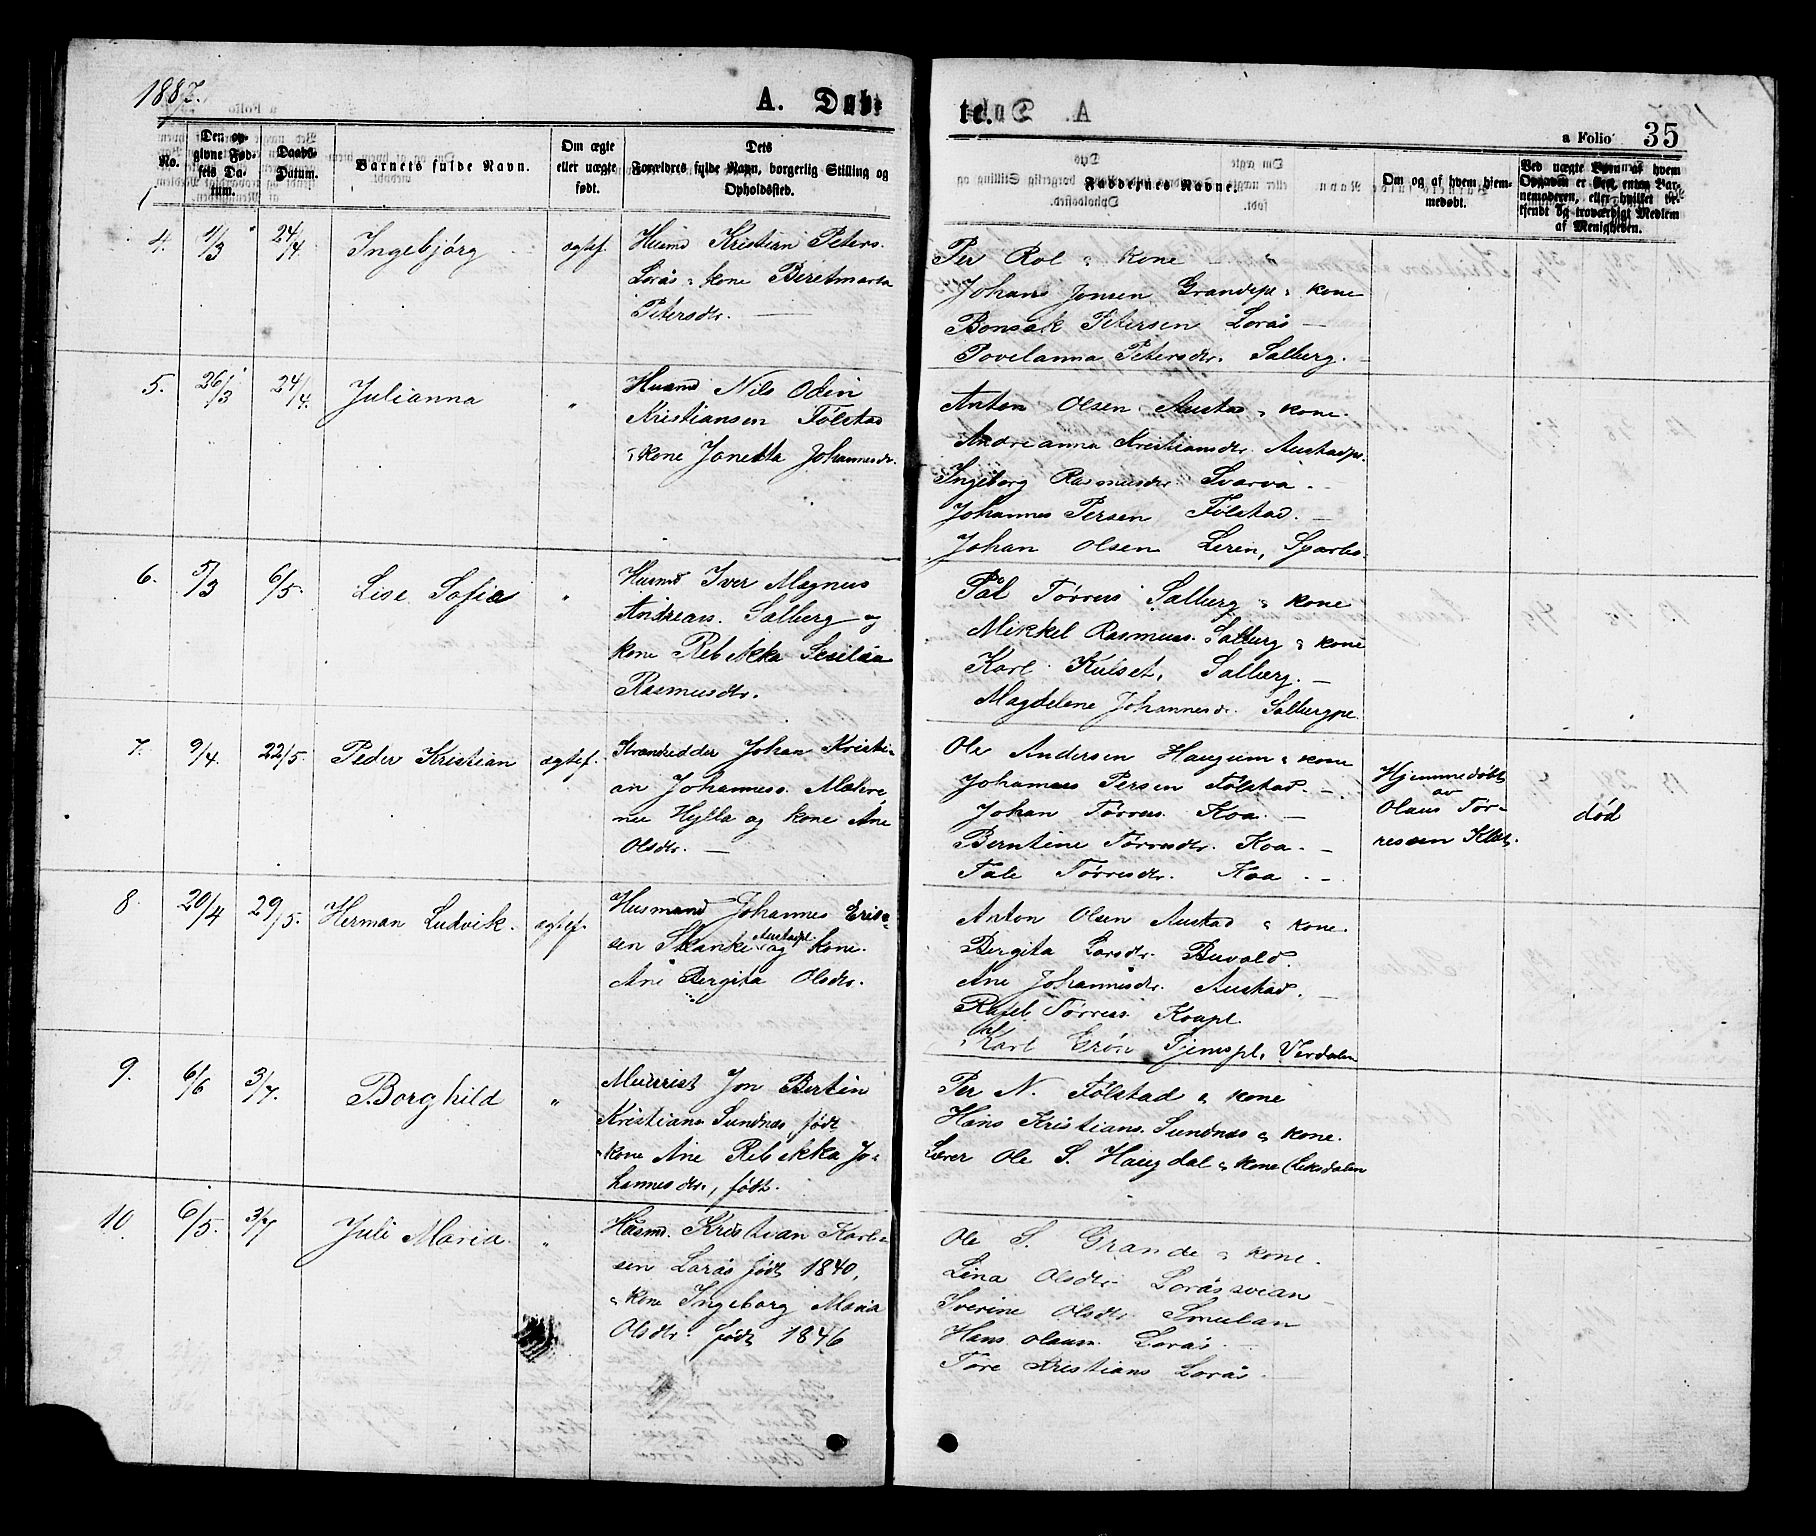 1887.
A. Døb-
te.
a Folio 35
No.
Den op-
givne Fød-
sels Da-
tum.
Daabs-
Datum.
Barnets fulde Navn.
Om ægte
eller uægte
født.
Dets
Forældres fulde Navn, borgerlig Stilling og
Opholdssted.
Faddernes Navne.
Om og af hvem hjem-
medøbt.
Ved uægte Børn: af hvem
Opgaven er skeet, enten Bar-
nemoderen, eller hvilket be-
kjendt og troværdigt Medlem
af Menigheden.
4. 1/3 24/4. Ingebjörg ægtef.
Husmd Kristian Peters.
Lorås & kone Beretmarta
Petersdtr. —
Per Rol & kone
Johans Jonsen Grandepl & kone
Bonsak Petersen Lorås —
Povelanna Petersdtr. Salberg. —
5. 26/3 24/4. Julianna "
Husmd Nils Odin
Kristiansen Følstad
& kone Janetta Johannesdr.
Anton Olsen Austad & kone.
Andreanna Kristiansdtr. Austadpl.
Ingeborg Rasmusdtr Svarva. —
Johannes Persen Følstad. —
Johan Olsen Leren, Sparbo.
6. 5/3 6/5. Lise Sofie "
Husmd Iver Magnus
Andreas. Salberg og
kone Rebekka Sesilia
Rasmusdtr.
Pål Tørres Salberg & kone
Mikkel Rasmuss. Salberg & kone
Karl Kulset, Salberg. —
Magdelene Johannesdr. Salbergpl.
7. 9/4. 22/5. Peder Kristian ægtef.
Strandsidder Johan Kristi-
an Johanness. Målere
Hylla og kone Ane
Olsdtr. —
Ole Andersen Haugum & kone
Johannes Persen Følstad. —
Johan Tørres. Koa. —
Berntine Tørresdtr. Koa. —
Tale Tørresdtr. Koa. —
Hjemmedøbt
av
Olaus Tør-
ressen Klet.
død
8. 20/4 29/5. Herman Ludvik. ægtef.
Husmand Johannes Erik-
sen Skanke Austadpl. og kone.
Ane Bergita Olsdtr.
Anton Olsen Austad & kone.
Bergita Larsdtr. Buvald.
Ane Johannesdtr. Austad. —
Rafel Tørress. Koapl.
Karl Grön Tjemspl. Verdalen
9. 6/6 3/7. Borghild "
Meierist Jon Bertin
Kristians Sundnes født
& kone Ane Rebekka Jo-
hannesdtr., født.
Per N. Følstad & kone
Hans Kristians. Sundnes & kone.
Lærer Ole S. Haugdal & kone (Leksdalen
10. 6/5. 3/7 Juli Maria. "
Husmd. Kristian Karl-
sen Lorås født 1840,
& kone Ingeborg Maria
Olsdtr. født 1846
Ole S. Grande & kone.
Lina Olsdtr. Loråssvean —
Iverine Olsdtr. Smulan
Hans Olausn. Lorås. —
Tore Kristians Lorås. —